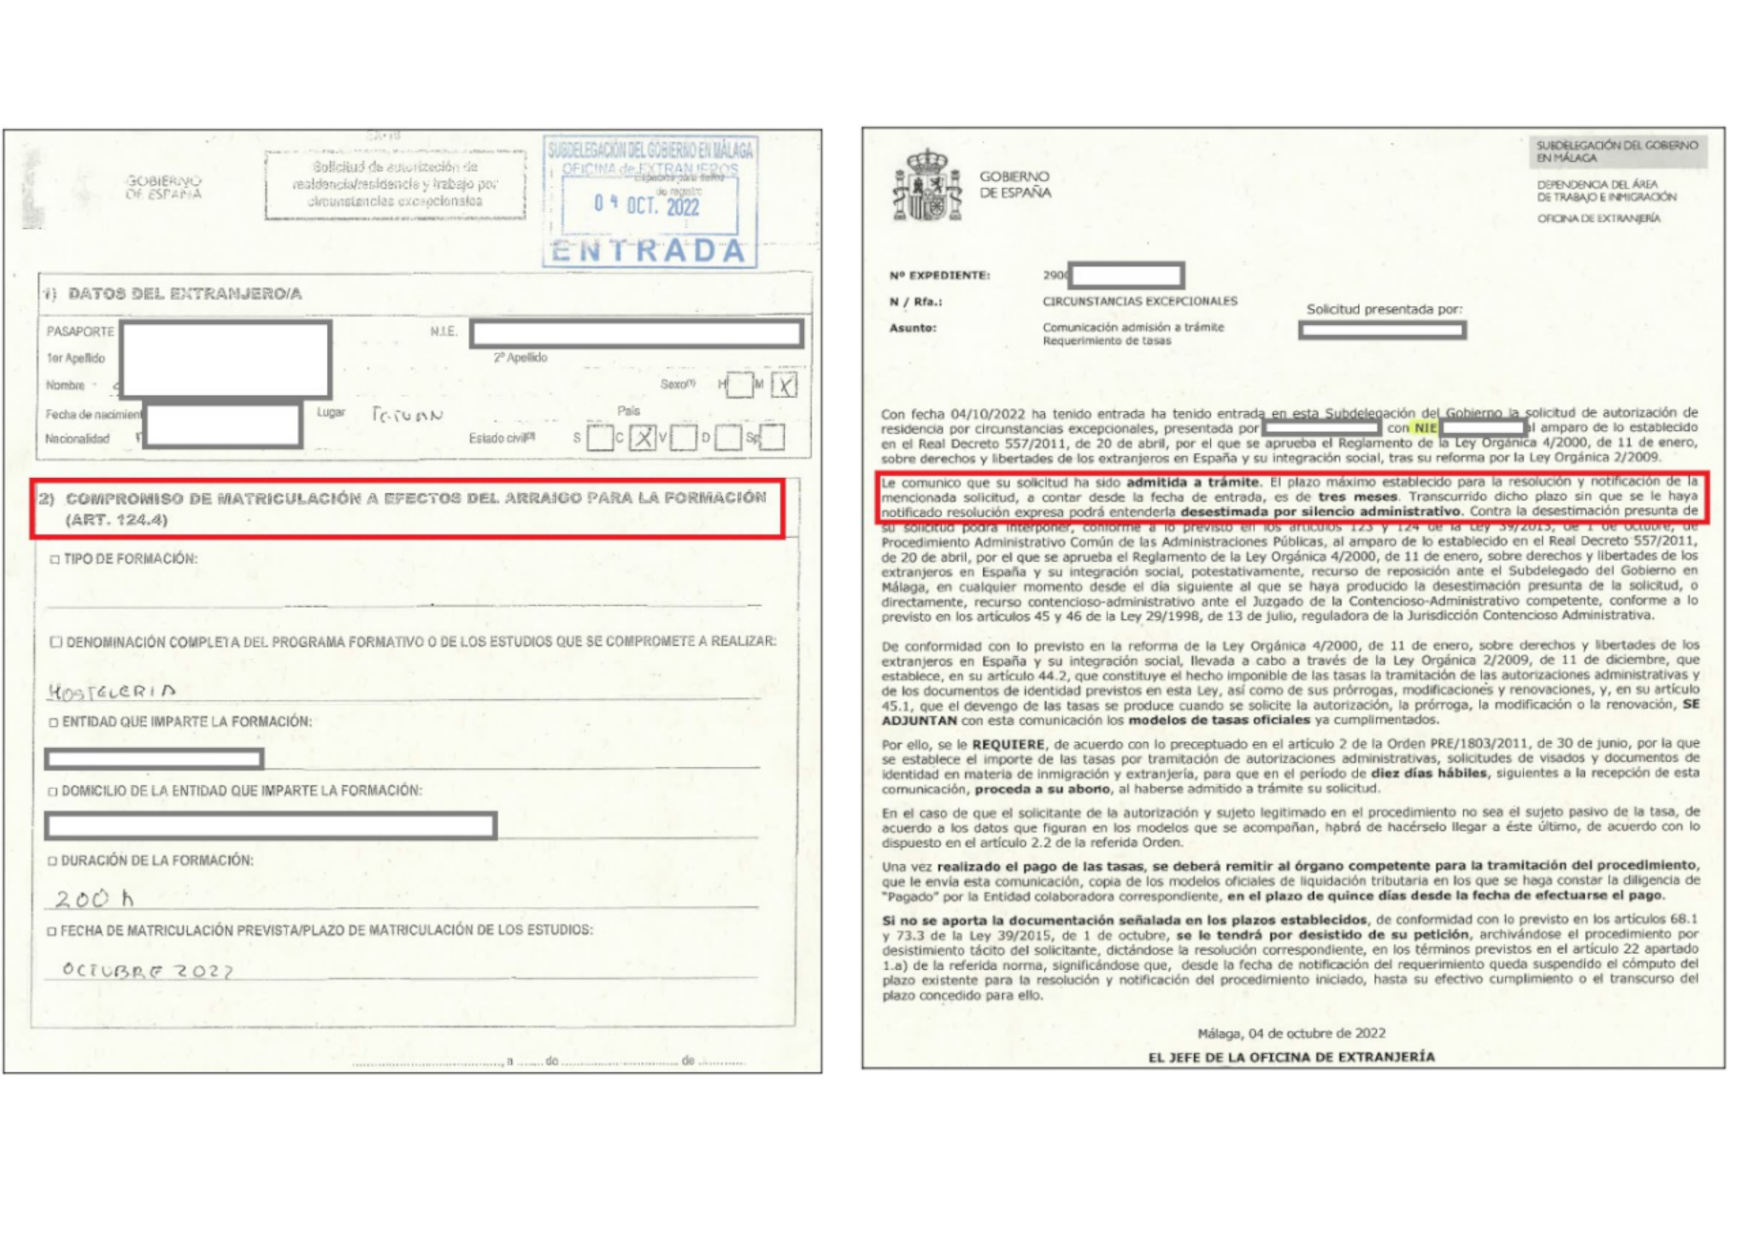 EX-10
GOBIERNO
DE ESPAÑA
Solicitud de autorización de
residencia/residencia y trabajo por
circunstancias excepcionales
SUBDELEGACIÓN DEL GOBIERNO EN MÁLAGA
OFICINA de EXTRANJEROS
de registro
04 OCT. 2022
ENTRADA
1) DATOS DEL EXTRANJERO/A
PASAPORTE
N.I.E.
1er Apellido
2º Apellido
Nombre
Sexo(1) H M X
Fecha de nacimient
Lugar TETUAN
País
Nacionalidad
Estado civil(2) S C X V D Sp
2) COMPROMISO DE MATRICULACIÓN A EFECTOS DEL ARRAIGO PARA LA FORMACIÓN
(ART. 124.4)
□ TIPO DE FORMACIÓN:
□ DENOMINACIÓN COMPLETA DEL PROGRAMA FORMATIVO O DE LOS ESTUDIOS QUE SE COMPROMETE A REALIZAR:
HOSTELERIA
□ ENTIDAD QUE IMPARTE LA FORMACIÓN:
□ DOMICILIO DE LA ENTIDAD QUE IMPARTE LA FORMACIÓN:
□ DURACIÓN DE LA FORMACIÓN:
200 h
□ FECHA DE MATRICULACIÓN PREVISTA/PLAZO DE MATRICULACIÓN DE LOS ESTUDIOS:
OCTUBRE 2022
, a ...... de ...................... de ............
GOBIERNO
DE ESPAÑA
SUBDELEGACIÓN DEL GOBIERNO
EN MÁLAGA
DEPENDENCIA DEL ÁREA
DE TRABAJO E INMIGRACIÓN
OFICINA DE EXTRANJERÍA
Nº EXPEDIENTE: 290
N / Rfa.: CIRCUNSTANCIAS EXCEPCIONALES
Solicitud presentada por:
Asunto: Comunicación admisión a trámite
Requerimiento de tasas
Con fecha 04/10/2022 ha tenido entrada ha tenido entrada en esta Subdelegación del Gobierno la solicitud de autorización de
residencia por circunstancias excepcionales, presentada por con NIE al amparo de lo establecido
en el Real Decreto 557/2011, de 20 de abril, por el que se aprueba el Reglamento de la Ley Orgánica 4/2000, de 11 de enero,
sobre derechos y libertades de los extranjeros en España y su integración social, tras su reforma por la Ley Orgánica 2/2009.
Le comunico que su solicitud ha sido admitida a trámite. El plazo máximo establecido para la resolución y notificación de la
mencionada solicitud, a contar desde la fecha de entrada, es de tres meses. Transcurrido dicho plazo sin que se le haya
notificado resolución expresa podrá entenderla desestimada por silencio administrativo. Contra la desestimación presunta de
su solicitud podrá interponer, conforme a lo previsto en los artículos 123 y 124 de la Ley 39/2015, de 1 de octubre, de
Procedimiento Administrativo Común de las Administraciones Públicas, al amparo de lo establecido en el Real Decreto 557/2011,
de 20 de abril, por el que se aprueba el Reglamento de la Ley Orgánica 4/2000, de 11 de enero, sobre derechos y libertades de los
extranjeros en España y su integración social, potestativamente, recurso de reposición ante el Subdelegado del Gobierno en
Málaga, en cualquier momento desde el día siguiente al que se haya producido la desestimación presunta de la solicitud, o
directamente, recurso contencioso-administrativo ante el Juzgado de lo Contencioso-Administrativo competente, conforme a lo
previsto en los artículos 45 y 46 de la Ley 29/1998, de 13 de julio, reguladora de la Jurisdicción Contencioso Administrativa.
De conformidad con lo previsto en la reforma de la Ley Orgánica 4/2000, de 11 de enero, sobre derechos y libertades de los
extranjeros en España y su integración social, llevada a cabo a través de la Ley Orgánica 2/2009, de 11 de diciembre, que
establece, en su artículo 44.2, que constituye el hecho imponible de las tasas la tramitación de las autorizaciones administrativas y
de los documentos de identidad previstos en esta Ley, así como de sus prórrogas, modificaciones y renovaciones, y, en su artículo
45.1, que el devengo de las tasas se produce cuando se solicite la autorización, la prórroga, la modificación o la renovación, SE
ADJUNTAN con esta comunicación los modelos de tasas oficiales ya cumplimentados.
Por ello, se le REQUIERE, de acuerdo con lo preceptuado en el artículo 2 de la Orden PRE/1803/2011, de 30 de junio, por la que
se establece el importe de las tasas por tramitación de autorizaciones administrativas, solicitudes de visados y documentos de
identidad en materia de inmigración y extranjería, para que en el período de diez días hábiles, siguientes a la recepción de esta
comunicación, proceda a su abono, al haberse admitido a trámite su solicitud.
En el caso de que el solicitante de la autorización y sujeto legitimado en el procedimiento no sea el sujeto pasivo de la tasa, de
acuerdo a los datos que figuran en los modelos que se acompañan, habrá de hacérselo llegar a éste último, de acuerdo con lo
dispuesto en el artículo 2.2 de la referida Orden.
Una vez realizado el pago de las tasas, se deberá remitir al órgano competente para la tramitación del procedimiento,
que le envía esta comunicación, copia de los modelos oficiales de liquidación tributaria en los que se haga constar la diligencia de
"Pagado" por la Entidad colaboradora correspondiente, en el plazo de quince días desde la fecha de efectuarse el pago.
Si no se aporta la documentación señalada en los plazos establecidos, de conformidad con lo previsto en los artículos 68.1
y 73.3 de la Ley 39/2015, de 1 de octubre, se le tendrá por desistido de su petición, archivándose el procedimiento por
desistimiento tácito del solicitante, dictándose la resolución correspondiente, en los términos previstos en el artículo 22 apartado
1.a) de la referida norma, significándose que, desde la fecha de notificación del requerimiento queda suspendido el cómputo del
plazo existente para la resolución y notificación del procedimiento iniciado, hasta su efectivo cumplimiento o el transcurso del
plazo concedido para ello.
Málaga, 04 de octubre de 2022
EL JEFE DE LA OFICINA DE EXTRANJERÍA